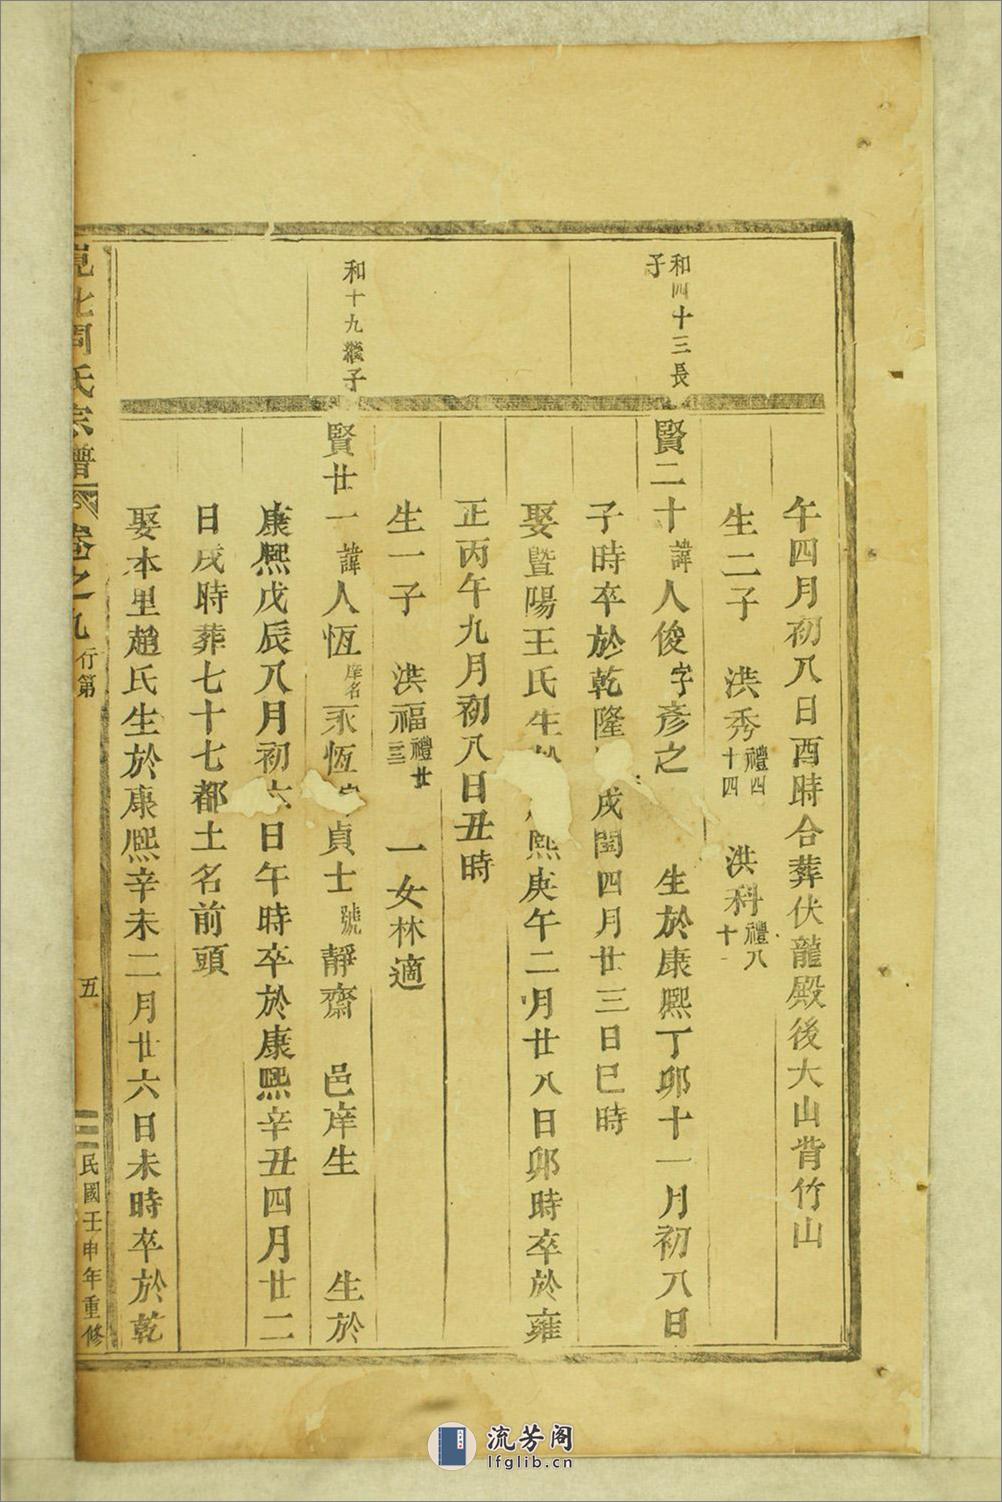 午四月初八日酉時合葬伏龍殿後大山背竹山
生二子 洪秀禮四十四 洪科禮八十
和四十三長子
賢二十諱人俊字彥之 生於康熙丁卯十一月初八日
子時卒於乾隆戌閏四月廿三日巳時
娶暨陽王氏生熙庚午二月廿八日卯時卒於雍
正丙午九月初八日丑時
生一子 洪福禮廿三 一女林適
和十九繼子
賢廿一諱人恆庠名永恆貞士號靜齋 邑庠生 生於
康熙戊辰八月初六日午時卒於康熙辛丑四月廿二
日戌時葬七十七都土名前頭
娶本里趙氏生於康熙辛未二月廿六日未時卒於乾
周氏宗譜 卷之九 行第 五 民國壬申年重修
流芳阁
lfglib.cn